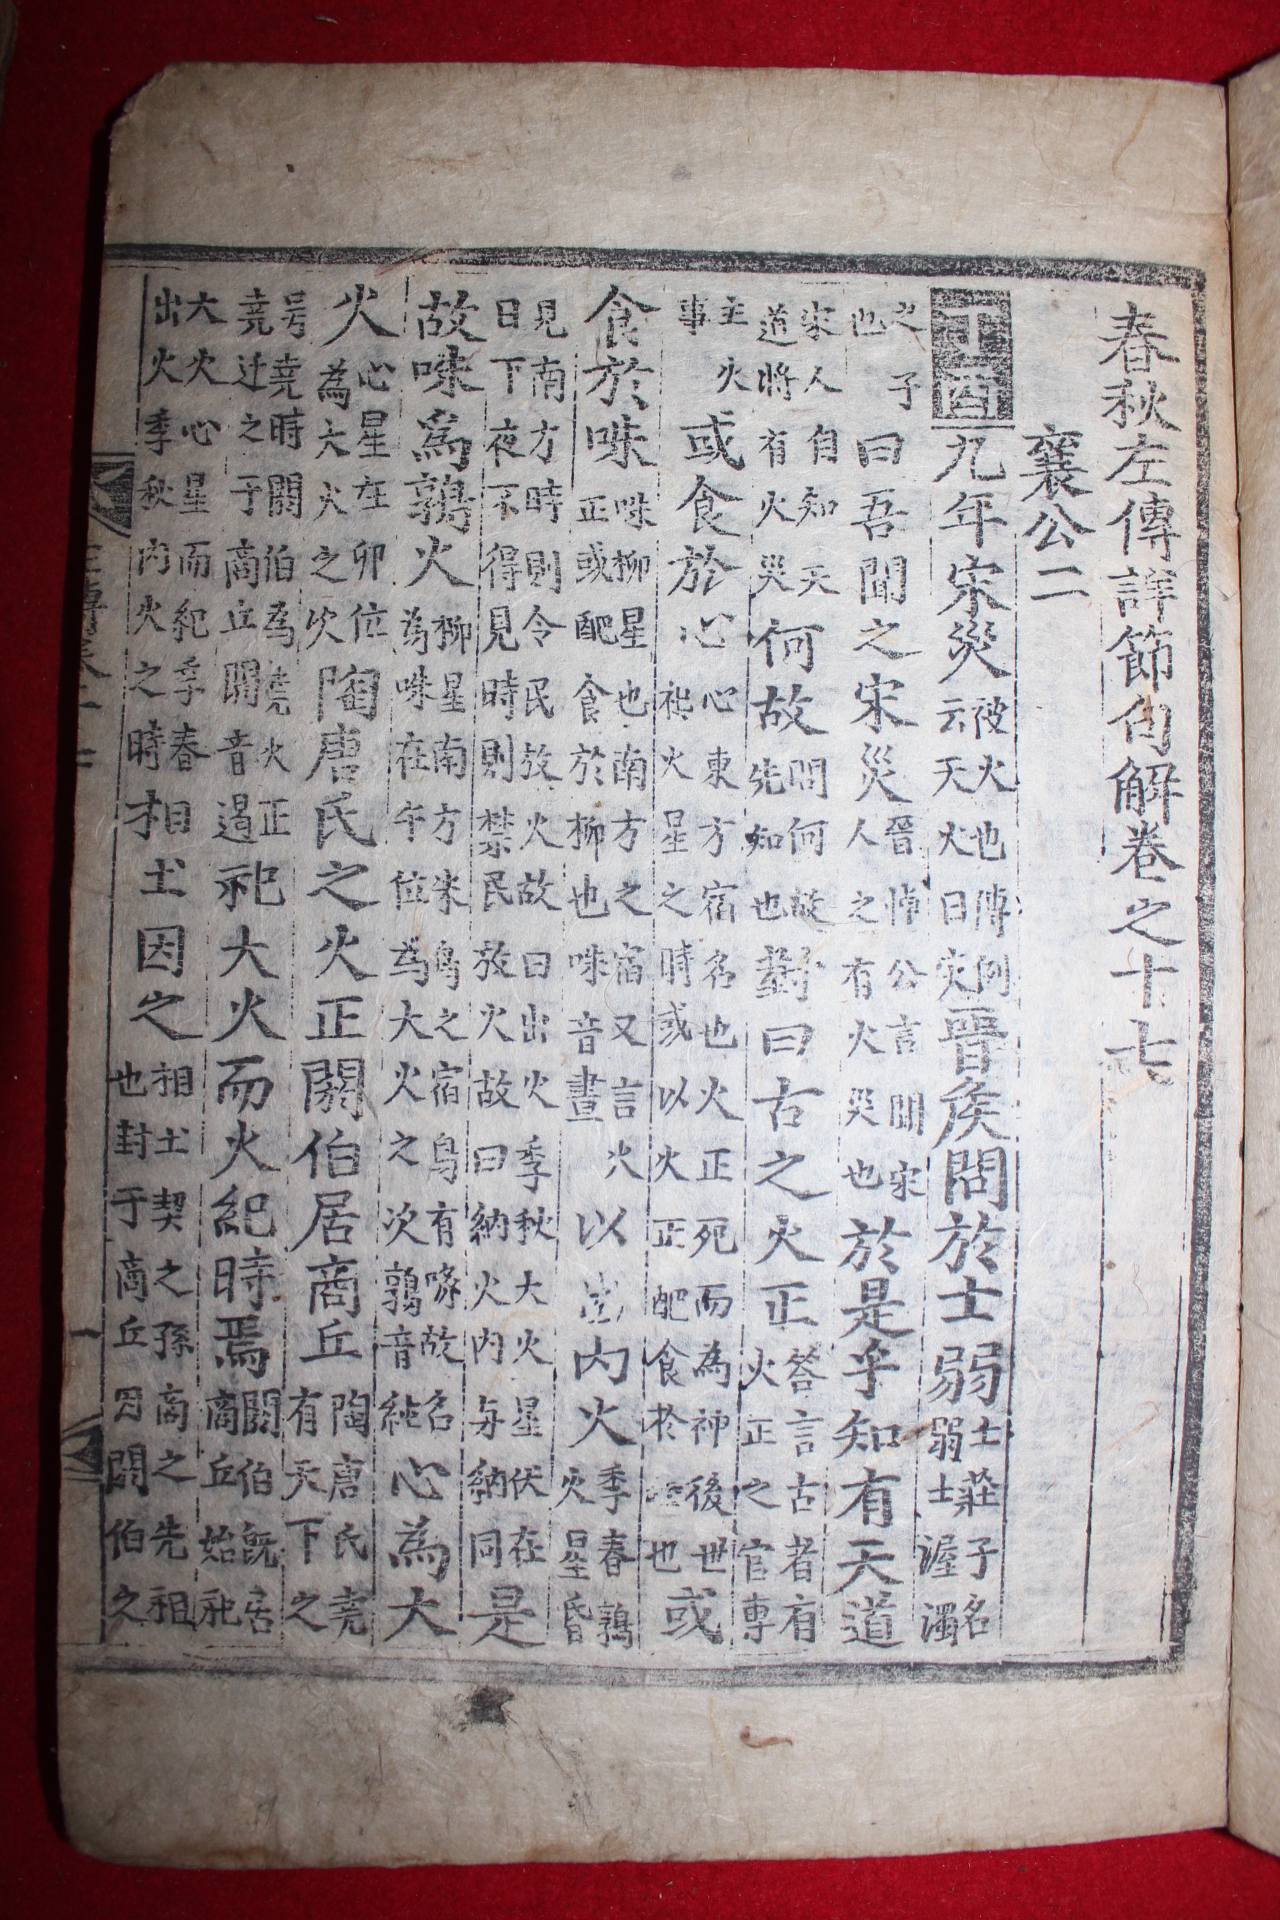 春秋左傳詳節句解卷之十七
襄公二
丁酉九年宋災被火也傳例云天火曰灾晉侯問於士弱士莊子名弱士渥濁
之子也曰吾聞之宋災晉悼公言聞宋人之有火災也於是乎知有天道
宋人自知天道將有火災何故問何故先知也對曰古之火正答言古者有火正之官專
主火事或食於心心東方宿名也火正死而為神後世祀火星之時或以火正配食於也或
食於咮咮柳星也南方之宿又言火正或配食於柳也咮音晝以出內火季春鶉火星昏
見南方時則令民放火故曰出火季秋大火星伏在日下夜不得見時則禁民放火故曰納火内与納同是
故咮爲鶉火柳星南方朱鳥之宿鳥有喙故名為咮在午位為大火之次鶉音純心為大
火心星在卯位為大火之次陶唐氏之火正閼伯居商丘陶唐氏堯有天下之
号堯時閼伯為堯火正堯迁之于商丘閼音遏祀大火而火紀時焉閼伯既居商丘始祀
大火心星而紀季春出火季秋內火之時相土因之相土契之孫商之先祖也封于商丘因閼伯之
左傳卷十七 一